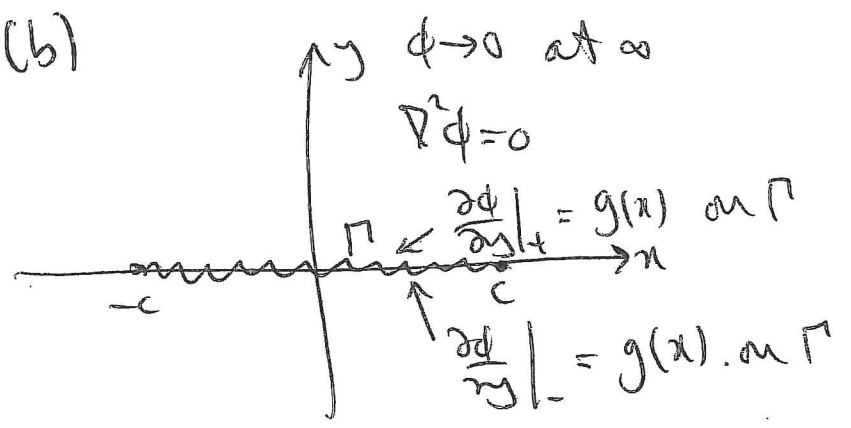 (b)
y ϕ→0 at ∞
∇²ϕ=0
Γ ∂ϕ/∂y|₊ = g(x) on Γ
x
-c c
∂ϕ/∂y|₋ = g(x). on Γ